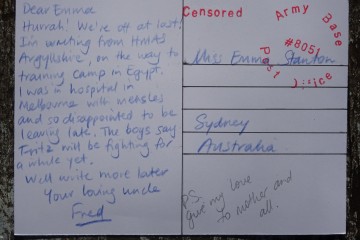 Dear Emma
Hurrah! We're off at last!
I'm writing from HMAS
Argyllshire, on the way to
training camp in Egypt.
I was in hospital in
Melbourne with measles
and so disappointed to be
leaving late. The boys say
Fritz will be fighting for
a while yet.
Will write more later
Your loving uncle
Fred
Censored
Army Base
#8051
Post Office
Miss Emma Stanton
Sydney
Australia
PS.
Give my love
to mother and
all.